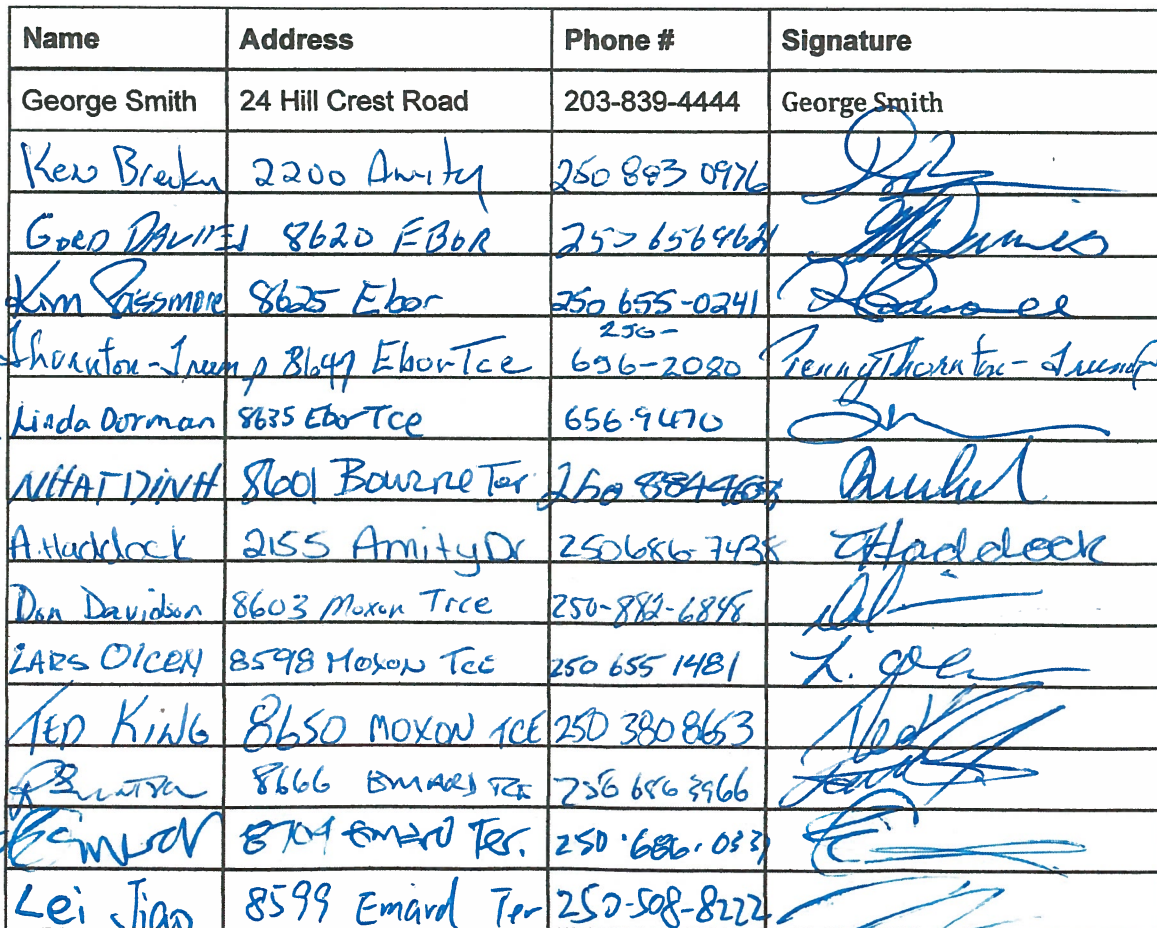 Name Address Phone # Signature
George Smith 24 Hill Crest Road 203-839-4444 George Smith
Ken 2200 Amity 250 883 0976
GORD DAVIES 8620 EBOR 250 6564621
Kim Passmore 8625 Ebor 250 655-0241
250-
Thornton-Trump 8647 Ebor Tce 656-2080 Penny Thornton-Trump
Linda Dorman 8635 Ebor Tce 656.9470
NHAT DINH 8601 Bourne Ter 250 8844608
A. Haddock 2155 Amity Dr 250 686-7438 Haddock
Don Davidson 8603 Moxon Trce 250-882-6848
LARS OLCEN 8598 MOXON TCE 250 655 1481 L.
TED KING 8650 MOXON TCE 250 380 8653 Ted
8666 EMARD TCE 250 686 3966
8704 Emard Ter. 250.686.0331
Lei Jiao 8599 Emard Ter 250-508-8222